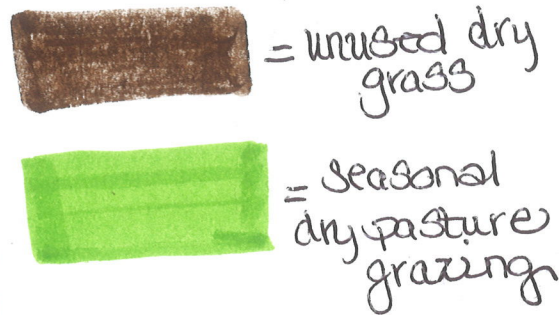 = unused dry
grass
= seasonal
dry pasture
grazing